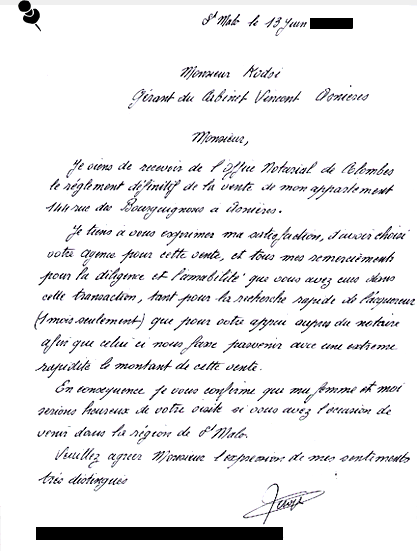 St Malo le 13 Juin
Monsieur Kodsi
Gérant du Cabinet Vincent Asnieres
Monsieur,
Je viens de recevoir de l'Office Notarial de Colombes
le réglement définitif de la vente de mon appartement
144 rue des Bourguignons à Asnières.
Je tiens à vous exprimer ma satisfaction, d'avoir choisi
votre agence pour cette vente, et tous mes remerciements
pour la diligence et l'amabilité que vous avez eues dans
cette transaction, tant pour la recherche rapide de l'acquereur
(1 mois seulement) que pour votre appui aupres du notaire
afin que celui ci nous fasse parvenir avec une extreme
rapidité le montant de cette vente.
En consequence je vous confirme que ma femme et moi
serions heureux de votre visite si vous avez l'occasion de
venir dans la région de St Malo.
Veuillez agreer Monsieur l'expression de mes sentiments
très distingués